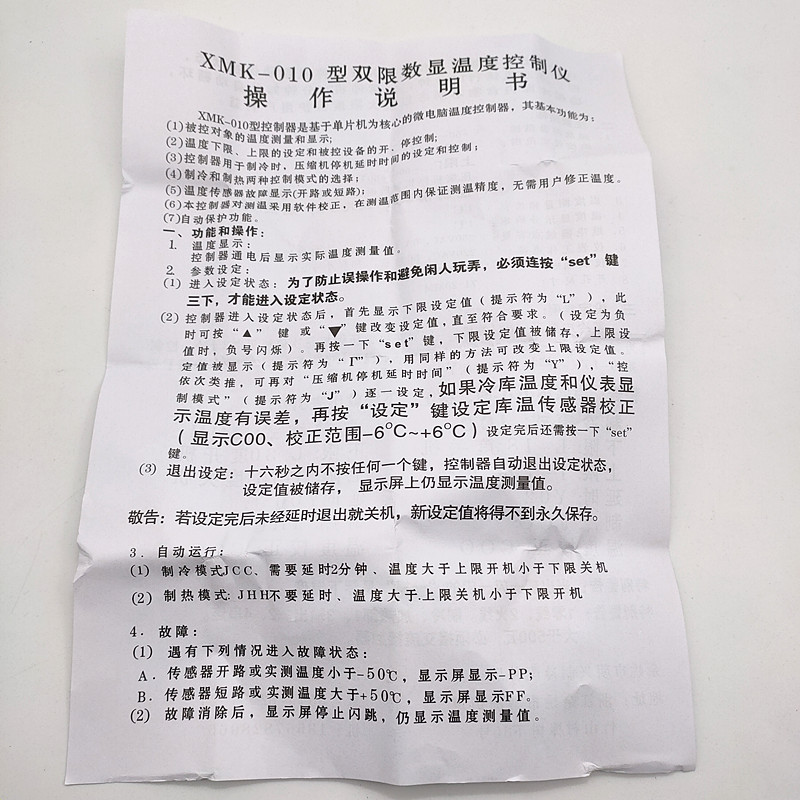 XMK-010 型双限数显温度控制仪
操 作 说 明 书
XMK-010型控制器是基于单片机为核心的微电脑温度控制器，其基本功能为：
(1)被控对象的温度测量和显示;
(2)温度下限、上限的设定和被控设备的开、停控制;
(3)控制器用于制冷时，压缩机停机延时时间的设定和控制;
(4)制冷和制热两种控制模式的选择;
(5)温度传感器故障显示(开路或短路);
(6)本控制器对测温采用软件校正，在测温范围内保证测温精度，无需用户修正温度。
(7)自动保护功能。
一、功能和操作:
1. 温度显示:
控制器通电后显示实际温度测量值。
2. 参数设定:
(1) 进入设定状态: 为了防止误操作和避免闲人玩弄，必须连按“set”键
三下，才能进入设定状态。
(2) 控制器进入设定状态后，首先显示下限设定值（提示符为“L”），此
时可按“▲”键 或“▼”键改变设定值，直至符合要求。（设定为负
值时，负号闪烁）。再按一下“set”键，下限设定值被储存，上限设
定值被显示（提示符为“Γ”），用同样的方法可改变上限设定值。
依次类推，可再对“压缩机停机延时时间”（提示符为“Y”），“控
制模式”（提示符为“J”）逐一设定，如果冷库温度和仪表显
示温度有误差，再按“设定”键设定库温传感器校正
（显示C00、校正范围-6°C~+6°C）设定完后还需按一下“set”
键。
(3) 退出设定: 十六秒之内不按任何一个键，控制器自动退出设定状态，
设定值被储存， 显示屏上仍显示温度测量值。
敬告: 若设定完后未经延时退出就关机，新设定值将得不到永久保存。
3. 自动运行:
(1) 制冷模式JCC、需要延时2分钟、温度大于上限开机小于下限关机
(2) 制热模式: JHH不要延时、温度大于上限关机小于下限开机
4. 故障:
(1) 遇有下列情况进入故障状态:
A. 传感器开路或实测温度小于-50℃，显示屏显示-PP;
B. 传感器短路或实测温度大于+50℃，显示屏显示FF。
(2) 故障消除后，显示屏停止闪跳，仍显示温度测量值。